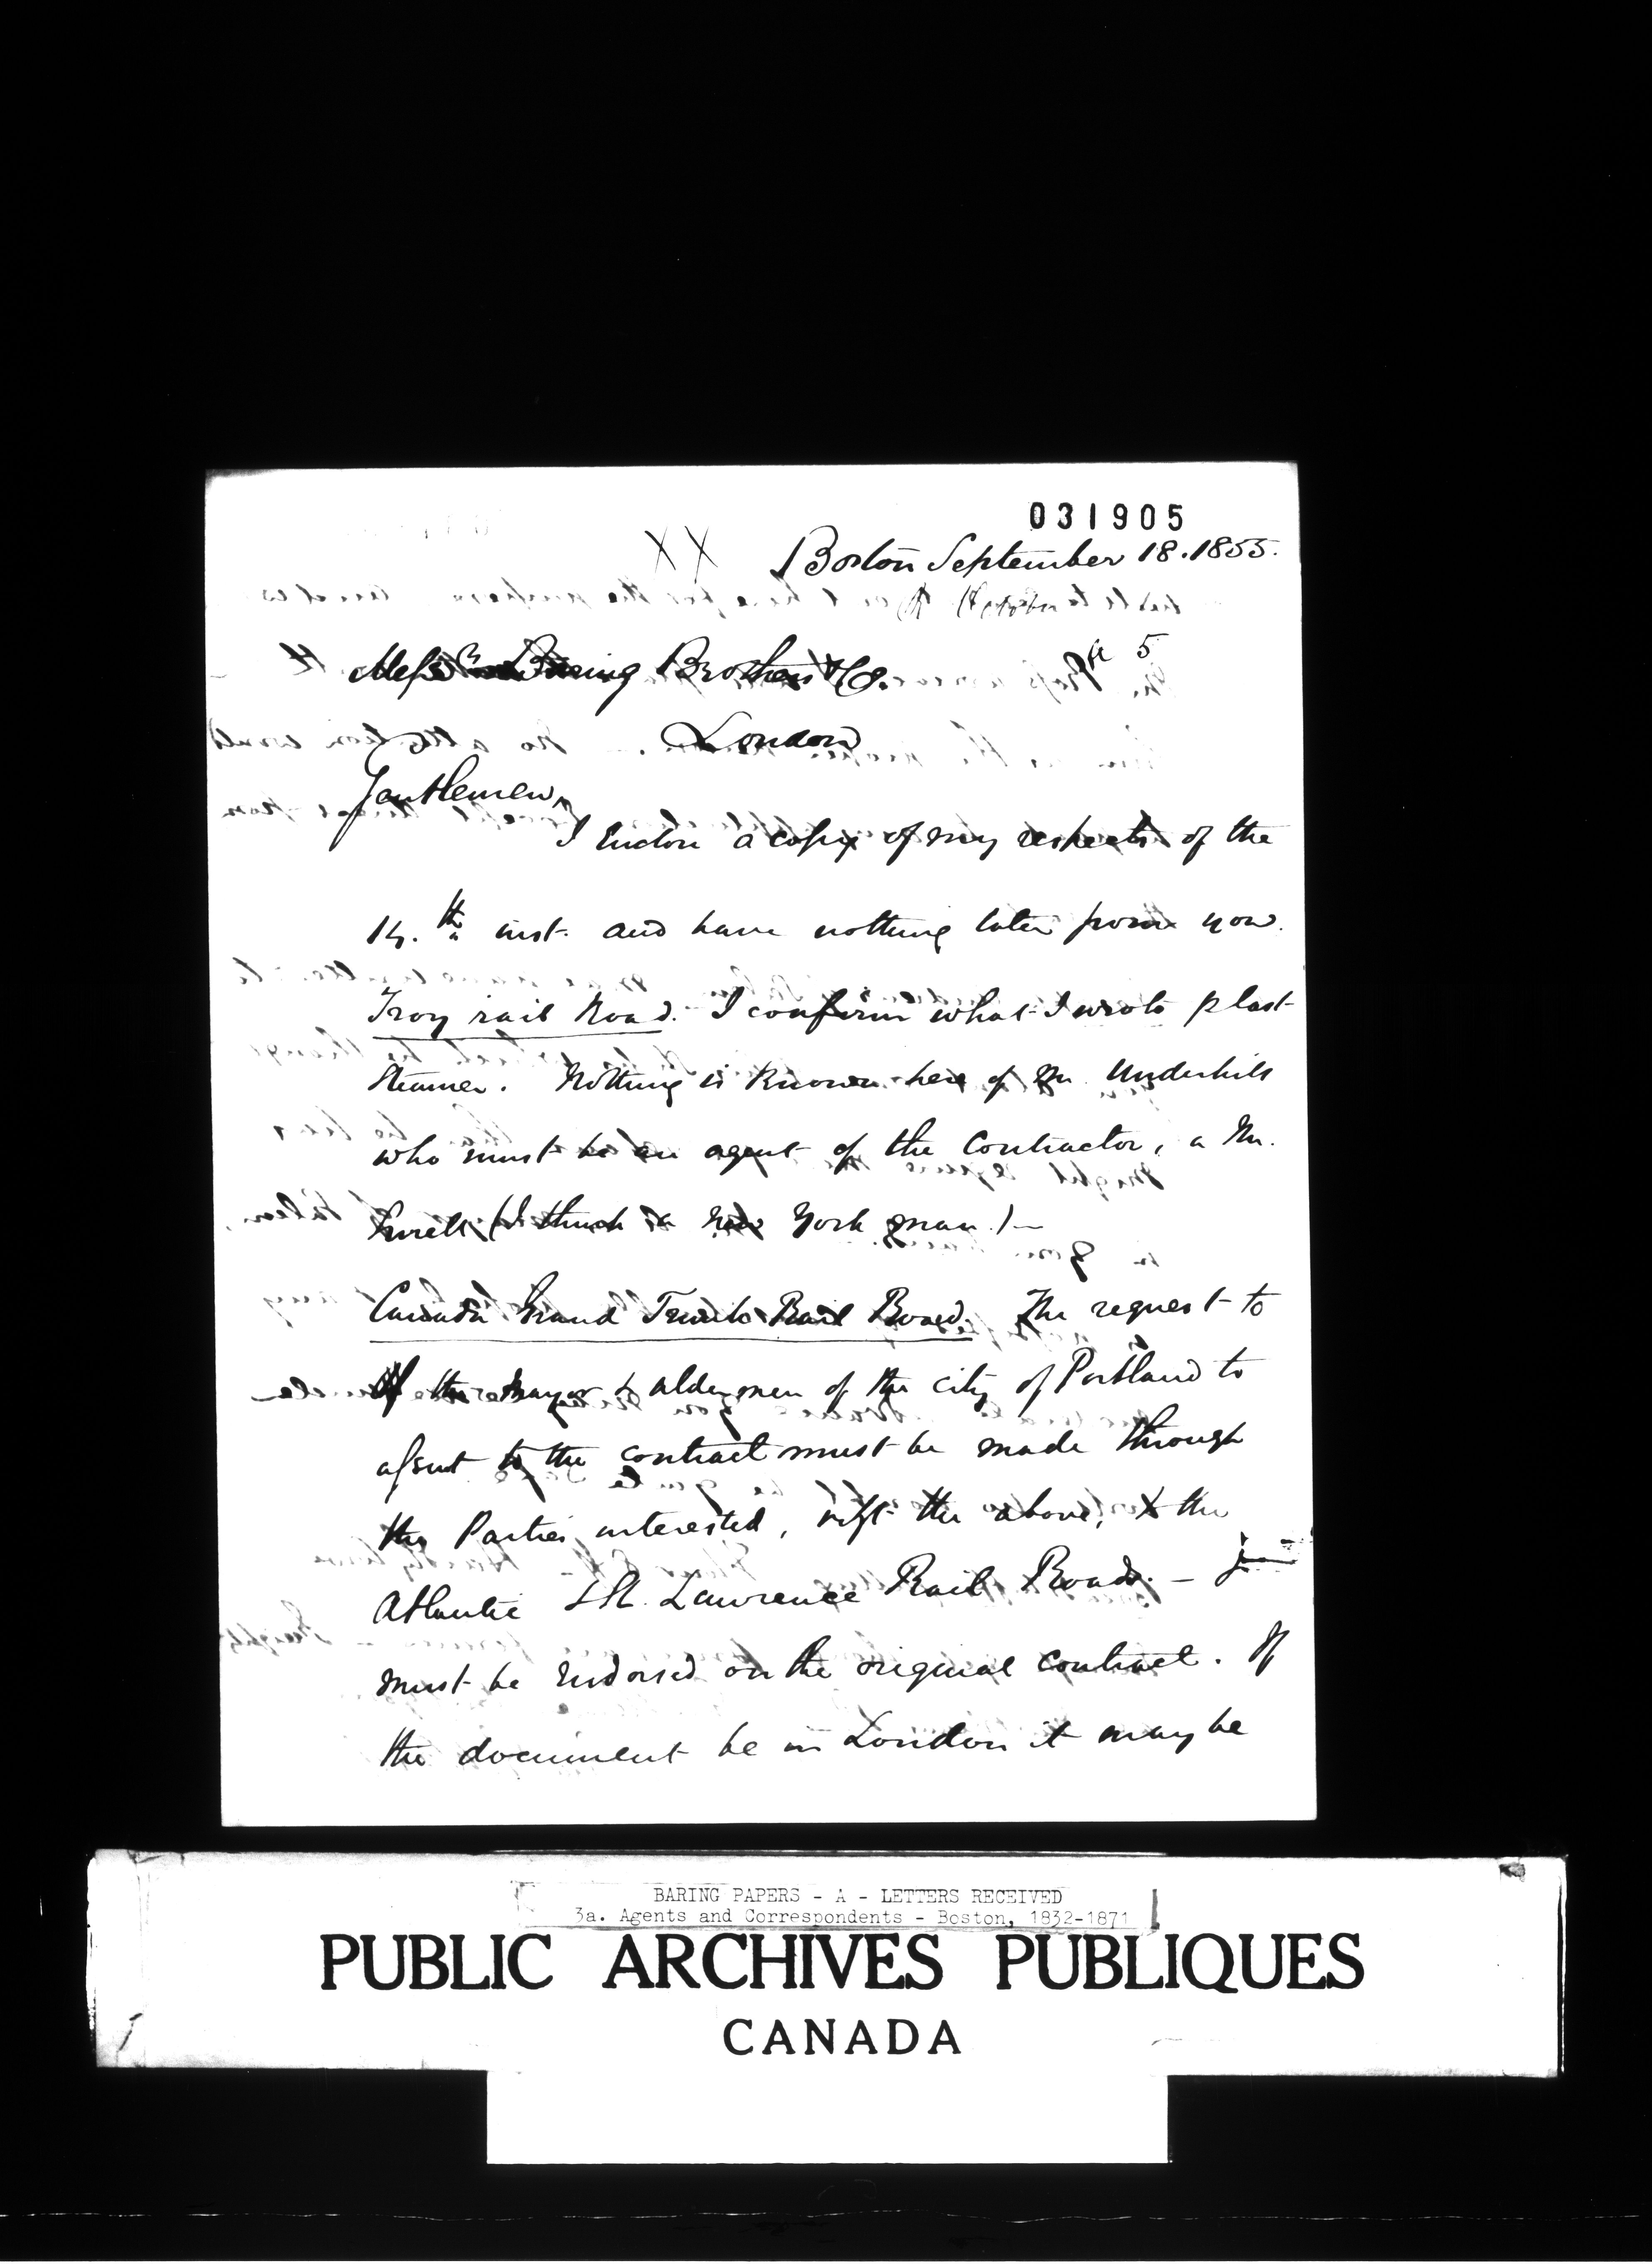 031905
XX Boston September 18. 1855.
October
Mess Baring Brothers & Co.
5
London
Gentlemen,
I Enclose a copy of my respects of the
14.th inst. and have nothing later from you.
Troy rail Road. I confirm what I wrote p last
Steamer. Nothing is known here of Mr. Underhill
who must be an agent of the Contractor, a Mr.
(I think a New York man.) —
Canada Grand Trunk Rail Road. The request to
the Mayor & aldermen of the city of Portland to
assent to the contract must be made through
the Parties interested, the above, & the
Atlantic & St. Lawrence Rail Roads. –
must be Endorsed on the original contract. If
the document be in London it may be
BARING PAPERS - A - LETTERS RECEIVED
3a. Agents and Correspondents - Boston, 1832-1871
PUBLIC ARCHIVES PUBLIQUES
CANADA